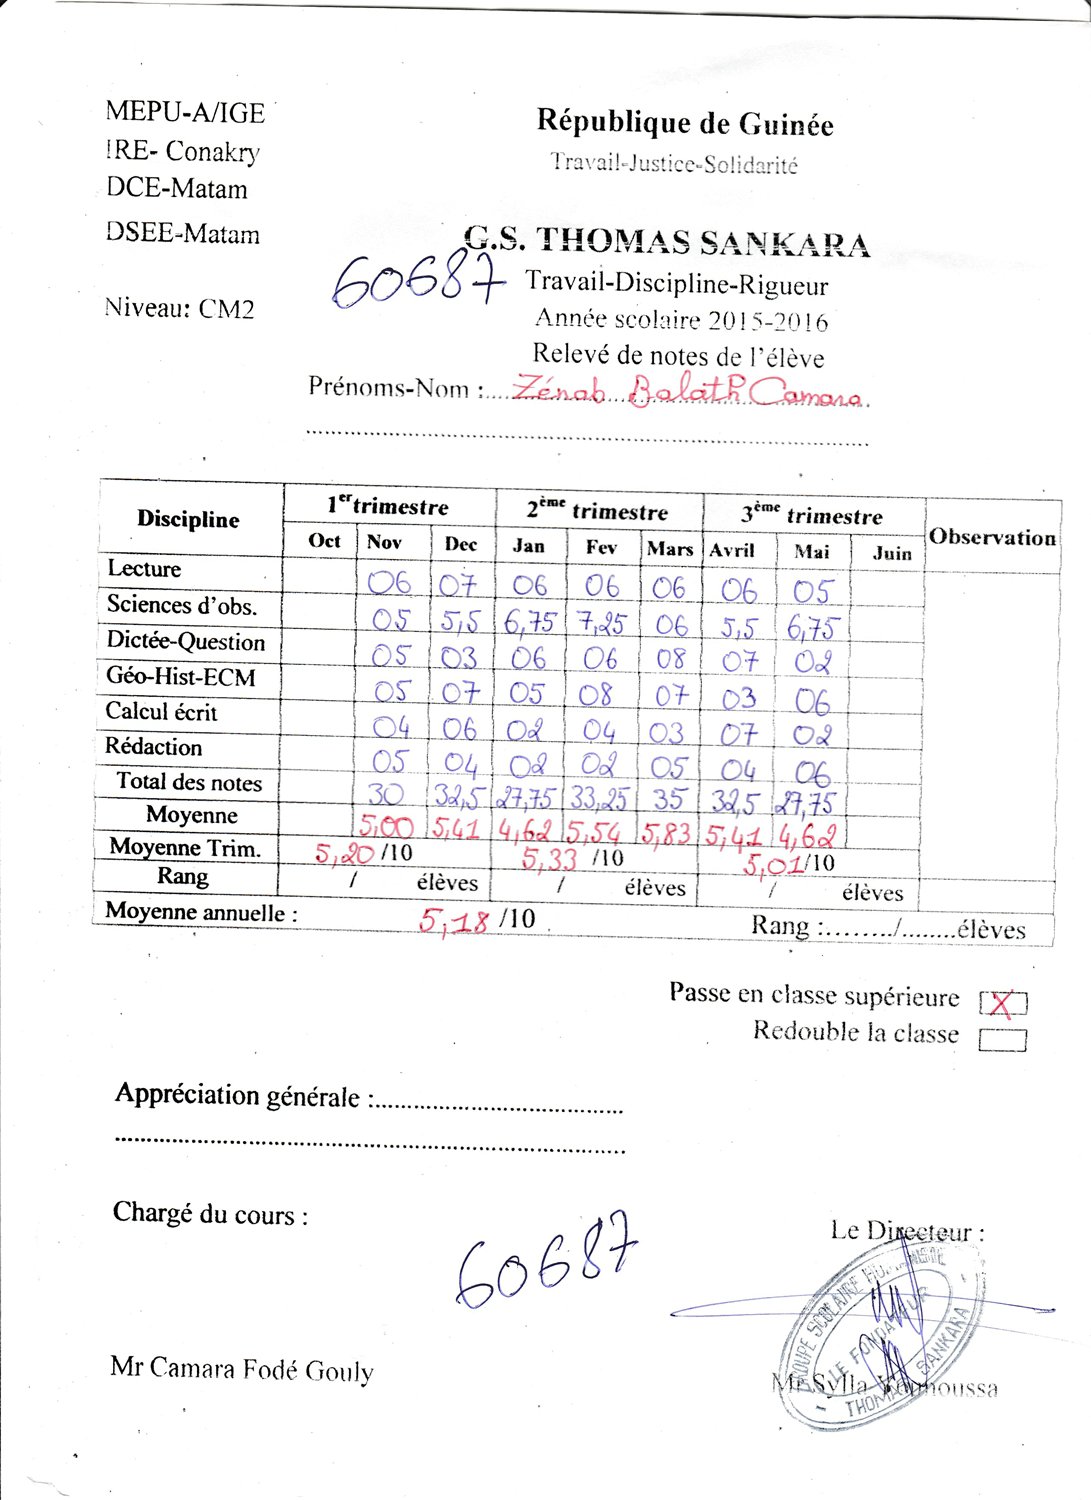 MEPU-A/IGE
République de Guinée
IRE- Conakry
Travail-Justice-Solidarité
DCE-Matam
DSEE-Matam
G.S. THOMAS SANKARA
60687
Travail-Discipline-Rigueur
Niveau: CM2
Année scolaire 2015-2016
Relevé de notes de l'élève
Prénoms-Nom :....Zénab Balath Camara.
Discipline 1er trimestre 2ème trimestre 3ème trimestre Observation
Oct Nov Dec Jan Fev Mars Avril Mai Juin
Lecture 06 07 06 06 06 06 05
Sciences d'obs. 05 5,5 6,75 7,25 06 5,5 6,75
Dictée-Question 05 03 06 06 08 07 02
Géo-Hist-ECM 05 07 05 08 07 03 06
Calcul écrit 04 06 02 04 03 07 02
Rédaction 05 04 02 02 05 04 06
Total des notes 30 32,5 27,75 33,25 35 32,5 27,75
Moyenne 5,00 5,41 4,62 5,54 5,83 5,41 4,62
Moyenne Trim. 5,20/10 5,33 /10 5,01/10
Rang / élèves / élèves / élèves
Moyenne annuelle : 5,18 /10 Rang :......../........élèves
Passe en classe supérieure X
Redouble la classe
Appréciation générale :......................................
Chargé du cours :
Le Directeur :
60687
GROUPE SCOLAIRE
LE FONDATEUR
THOMAS SANKARA
Mr Camara Fodé Gouly
Mr Sylla